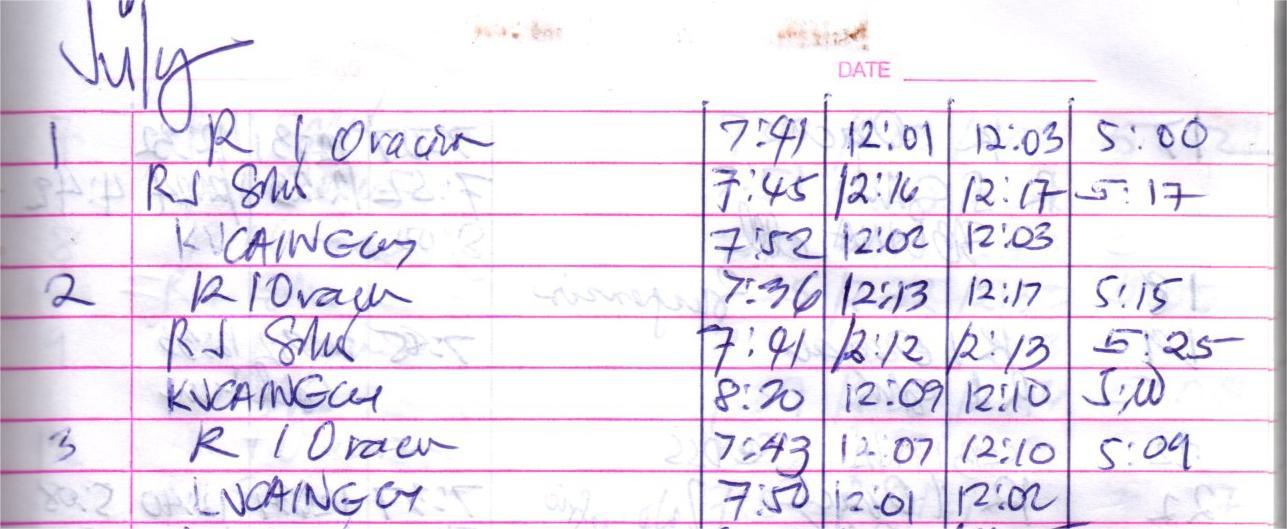 July
DATE
1 R I Oracion 7:41 12:01 12:03 5:00
RJ 7:45 12:16 12:17 5:17
KVCAINGCOY 7:52 12:02 12:03
2 R I Oracion 7:36 12:13 12:17 5:15
RJ 7:41 12:12 12:13 5:25
KVCAINGCOY 8:20 12:09 12:10 5:10
3 R I Oracion 7:43 12:07 12:10 5:09
KVCAINGCOY 7:50 12:01 12:02